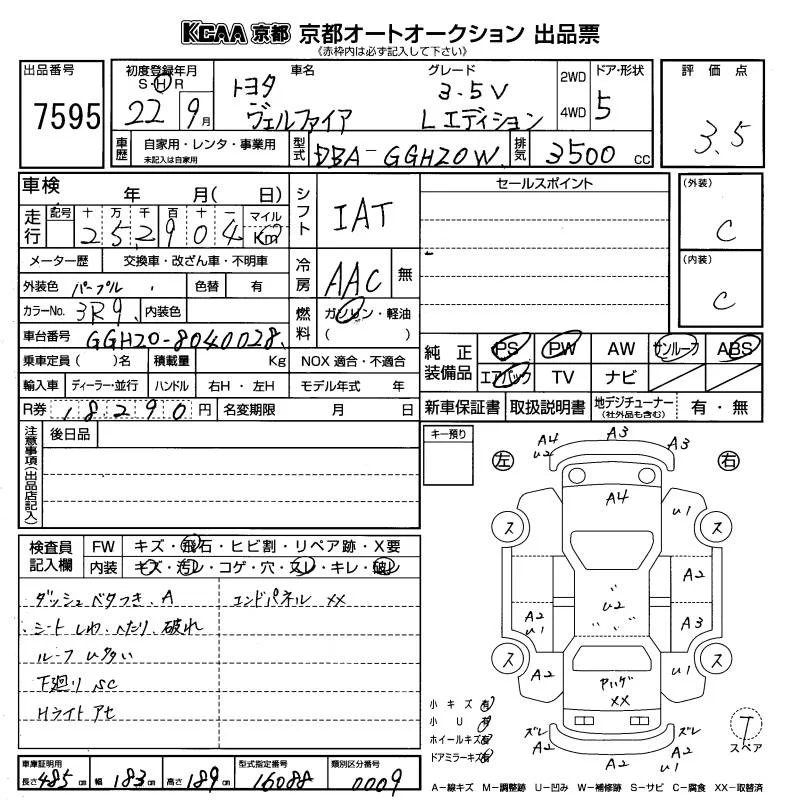 KCAA 京都 京都オートオークション 出品票
《赤枠内は必ず記入して下さい》
出品番号 7595
初度登録年月 S・H・R 22 9月
車名 トヨタ ヴェルファイア
グレード 3.5V Lエディション
2WD 4WD
ドア・形状 5
評価点 3.5
車歴 自家用・レンタ・事業用 未記入は自家用
型式 DBA-GGH20W
排気 3500 cc
車検 年 月( 日)
走行 記号 十 万 千 百 十 一 マイル Km
252904
メーター歴 交換車・改ざん車・不明車
外装色 パープル 色替 有
カラーNo. 3R9 内装色
車台番号 GGH20-8040028
乗車定員 ( )名 積載量 Kg
輸入車 ディーラー・並行 ハンドル 右H・左H モデル年式 年
R券 18290円 名変期限 月 日
シフト IAT
冷房 AAC 無
燃料 ガソリン・軽油 ( )
NOX 適合・不適合
セールスポイント
(外装) C
(内装) C
純正装備品 PS PW AW サンルーフ ABS
エアバック TV ナビ
新車保証書 取扱説明書 地デジチューナー (社外品も含む) 有・無
注意事項(出品店記入) 後日品
キー預り
検査員記入欄 FW キズ・飛石・ヒビ割・リペア跡・X要
内装 キズ・汚レ・コゲ・穴・スレ・キレ・破レ
ダッシュベタつき、A エンドパネル XX
シートしわ、へたり、破れ
ルーフ U多い
下廻り SC
Hライトアセ
左 右
A4 U2 A3 A3
A4 U1
ス ス
A2
U2
A2 U1 A3
ス ス
A2 U1
A ハゲ XX
ズレ A2 A2 ズレ A2 U1
小キズ 有
小U 有
ホイールキズ 有
ドアミラーキズ 有
T スペア
車庫証明用 長さ 485 cm 幅 183 cm 高さ 189 cm
型式指定番号 16088
類別区分番号 0009
A-線キズ M-調整跡 U-凹み W-補修跡 S-サビ C-腐食 XX-取替済